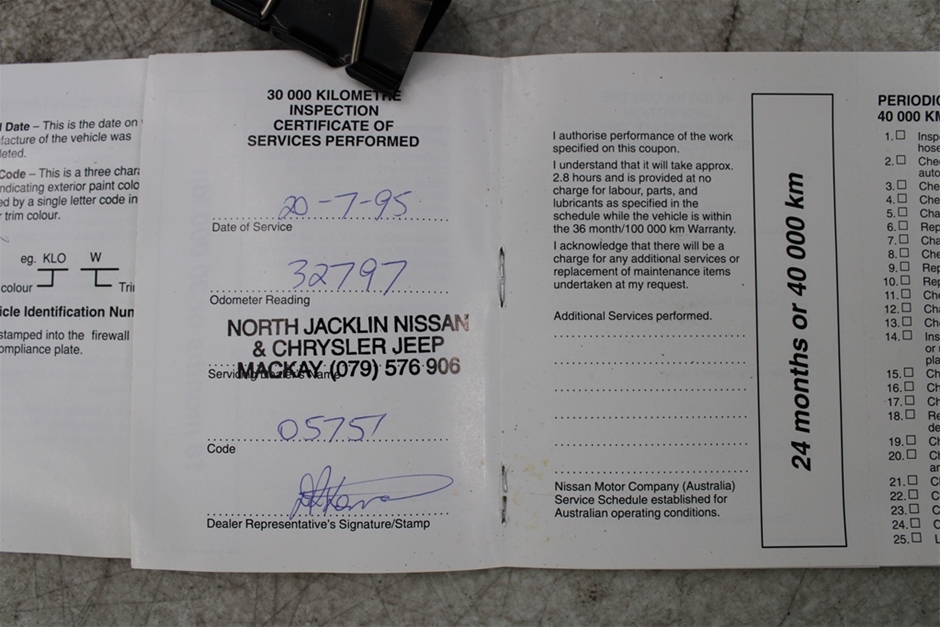 l Date – This is the date on
facture of the vehicle was
leted.
Code – This is a three chara
ndicating exterior paint colo
ed by a single letter code in
r trim colour.
eg. KLO W
colour Tri
icle Identification Num
stamped into the firewall
ompliance plate.
30 000 KILOMETRE
INSPECTION
CERTIFICATE OF
SERVICES PERFORMED
20-7-95
Date of Service
32797
Odometer Reading
NORTH JACKLIN NISSAN
& CHRYSLER JEEP
MACKAY (079) 576 906
Servicing Dealer's Name
05757
Code
Dealer Representative's Signature/Stamp
I authorise performance of the work
specified on this coupon.
I understand that it will take approx.
2.8 hours and is provided at no
charge for labour, parts, and
lubricants as specified in the
schedule while the vehicle is within
the 36 month/100 000 km Warranty.
I acknowledge that there will be a
charge for any additional services or
replacement of maintenance items
undertaken at my request.
Additional Services performed.
Nissan Motor Company (Australia)
Service Schedule established for
Australian operating conditions.
24 months or 40 000 km
PERIODIC
40 000 KM
1. Insp
hose
2. Che
auto
3. Che
4. Che
5. Cha
6. Rep
7. Cha
8. Che
9. Rep
10. Rep
11. Che
12. Cha
13. Cha
14. Ins
or
pla
15. Ch
16. Ch
17. Ch
18. Re
de
19. Ch
20. Ch
an
21. Cl
22. C
23. C
24. C
25. L